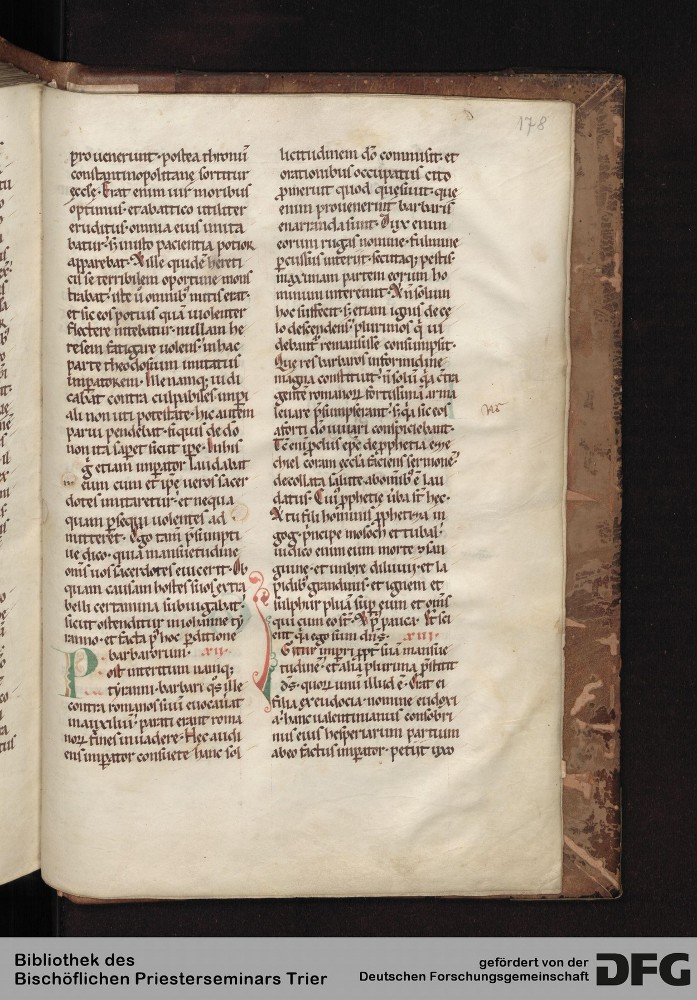 178
prouenerunt· postea thronū
constantinopolitanę sortitur
ęccłę· Erat enim uir moribus
optimus· et ab attico utiliter
eruditus· omnia eius imita
batur· s; in isto pacientia potior
apparebat· Nā ille quidē hereti
cis se terribilem oportune mons
trabat· iste ū omnib; mitis erat·
et sic eos potius quā uiolenter
flectere nitebatur· nullam he
resem fatigare uolens· in hac
parte theodosium imitatus
imperatorem· Ille namq; iudi
cabat contra culpabiles imp̄i
ali non uti potestate· hic autem
parui pendebat· si quis de dō
non ita sap̄et sicut ip̄e·
ḡ etiam imp̄ator laudabat
eum cum et ip̄e ueros sacer
dotes imitaretur· et nequa
quam p̄sequi uolentes ad
mitteret· Ergo tam p̄sumpti
ue dico· quia mansuetudine
om̄s uos sacerdotes euicerit· Ob
quam causam hostes suos extra
belli certamina subiugabat·
sicut ostenditur in iohanne ty
ranno· et facta p̄ hoc p̄ditione
barbarorum· xii·
Post interitum namq;
tyranni· barbari q̄s ille
contra romanos sibi euocauat
in auxiliū· parati erant roma
norū fines inuadere· Hęc audi
ens imp̄ator consuete hanc sol
licitudinem dō commisit· et
orationibus occupatus cito
p̄meruit quod quęsiuit· que
enim prouenerunt barbaris
enarranda sunt· Dux enim
eorum rugas nomine· fulmine
p̄cussus interiit· secutaq; pestis
maximam partem eorum ho
minum interemit· Et n̄ solum
hoc suffecit· s; etiam ignis de cę
lo descendens· plurimos q̄ ui
debant remansisse consumpsit·
Que res barbaros in formidine
magna constituit· n̄ solū q̄a c̄tra
gentē romanorū fortissimā arma
leuare p̄sumpserant· s; q̄a sic eos
a forti dō iuuari conspiciebant·
Tc̄ enī p̄clus ep̄c de p̄phetia eze
chiel coram ecclā faciens sermonē·
decollata salute ab omib; ē lau
datus· Cui p̄phetie ūba st̄ hec·
Et tu fili hominis p̄phetiza in
gog· p̄ncipe mosoch et tubal·
iudico enim eum morte ⁊ san
guine· et imbre diluuii· et la
pidib; grandinis· et ignem et
sulphur pluā sup̄ eum et om̄s
qui cum eo st̄· Et sci
ent q̄a ego sum dn̄s· xiii·
Igitur imp̄ri p̄pt̄ suā mansue
tudinē· et alia plurima p̄stitit
d̄s· quorū unū illud ē· Erat ei
filia ex eudocia· nomine eudoxi
a· hanc ualentinianus consobri
nus eius hesperiarum partium
ab eo factus imp̄ator· petiit uxo
Bibliothek des
Bischöflichen Priesterseminars Trier
gefördert von der
Deutschen Forschungsgemeinschaft
DFG